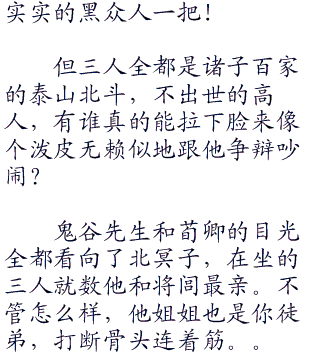 实实的黑众人一把！
但三人全都是诸子百家
的泰山北斗，不出世的高
人，有谁真的能拉下脸来像
个泼皮无赖似地跟他争辩吵
闹？
鬼谷先生和荀卿的目光
全都看向了北冥子，在坐的
三人就数他和将闾最亲。不
管怎么样，他姐姐也是你徒
弟，打断骨头连着筋。。